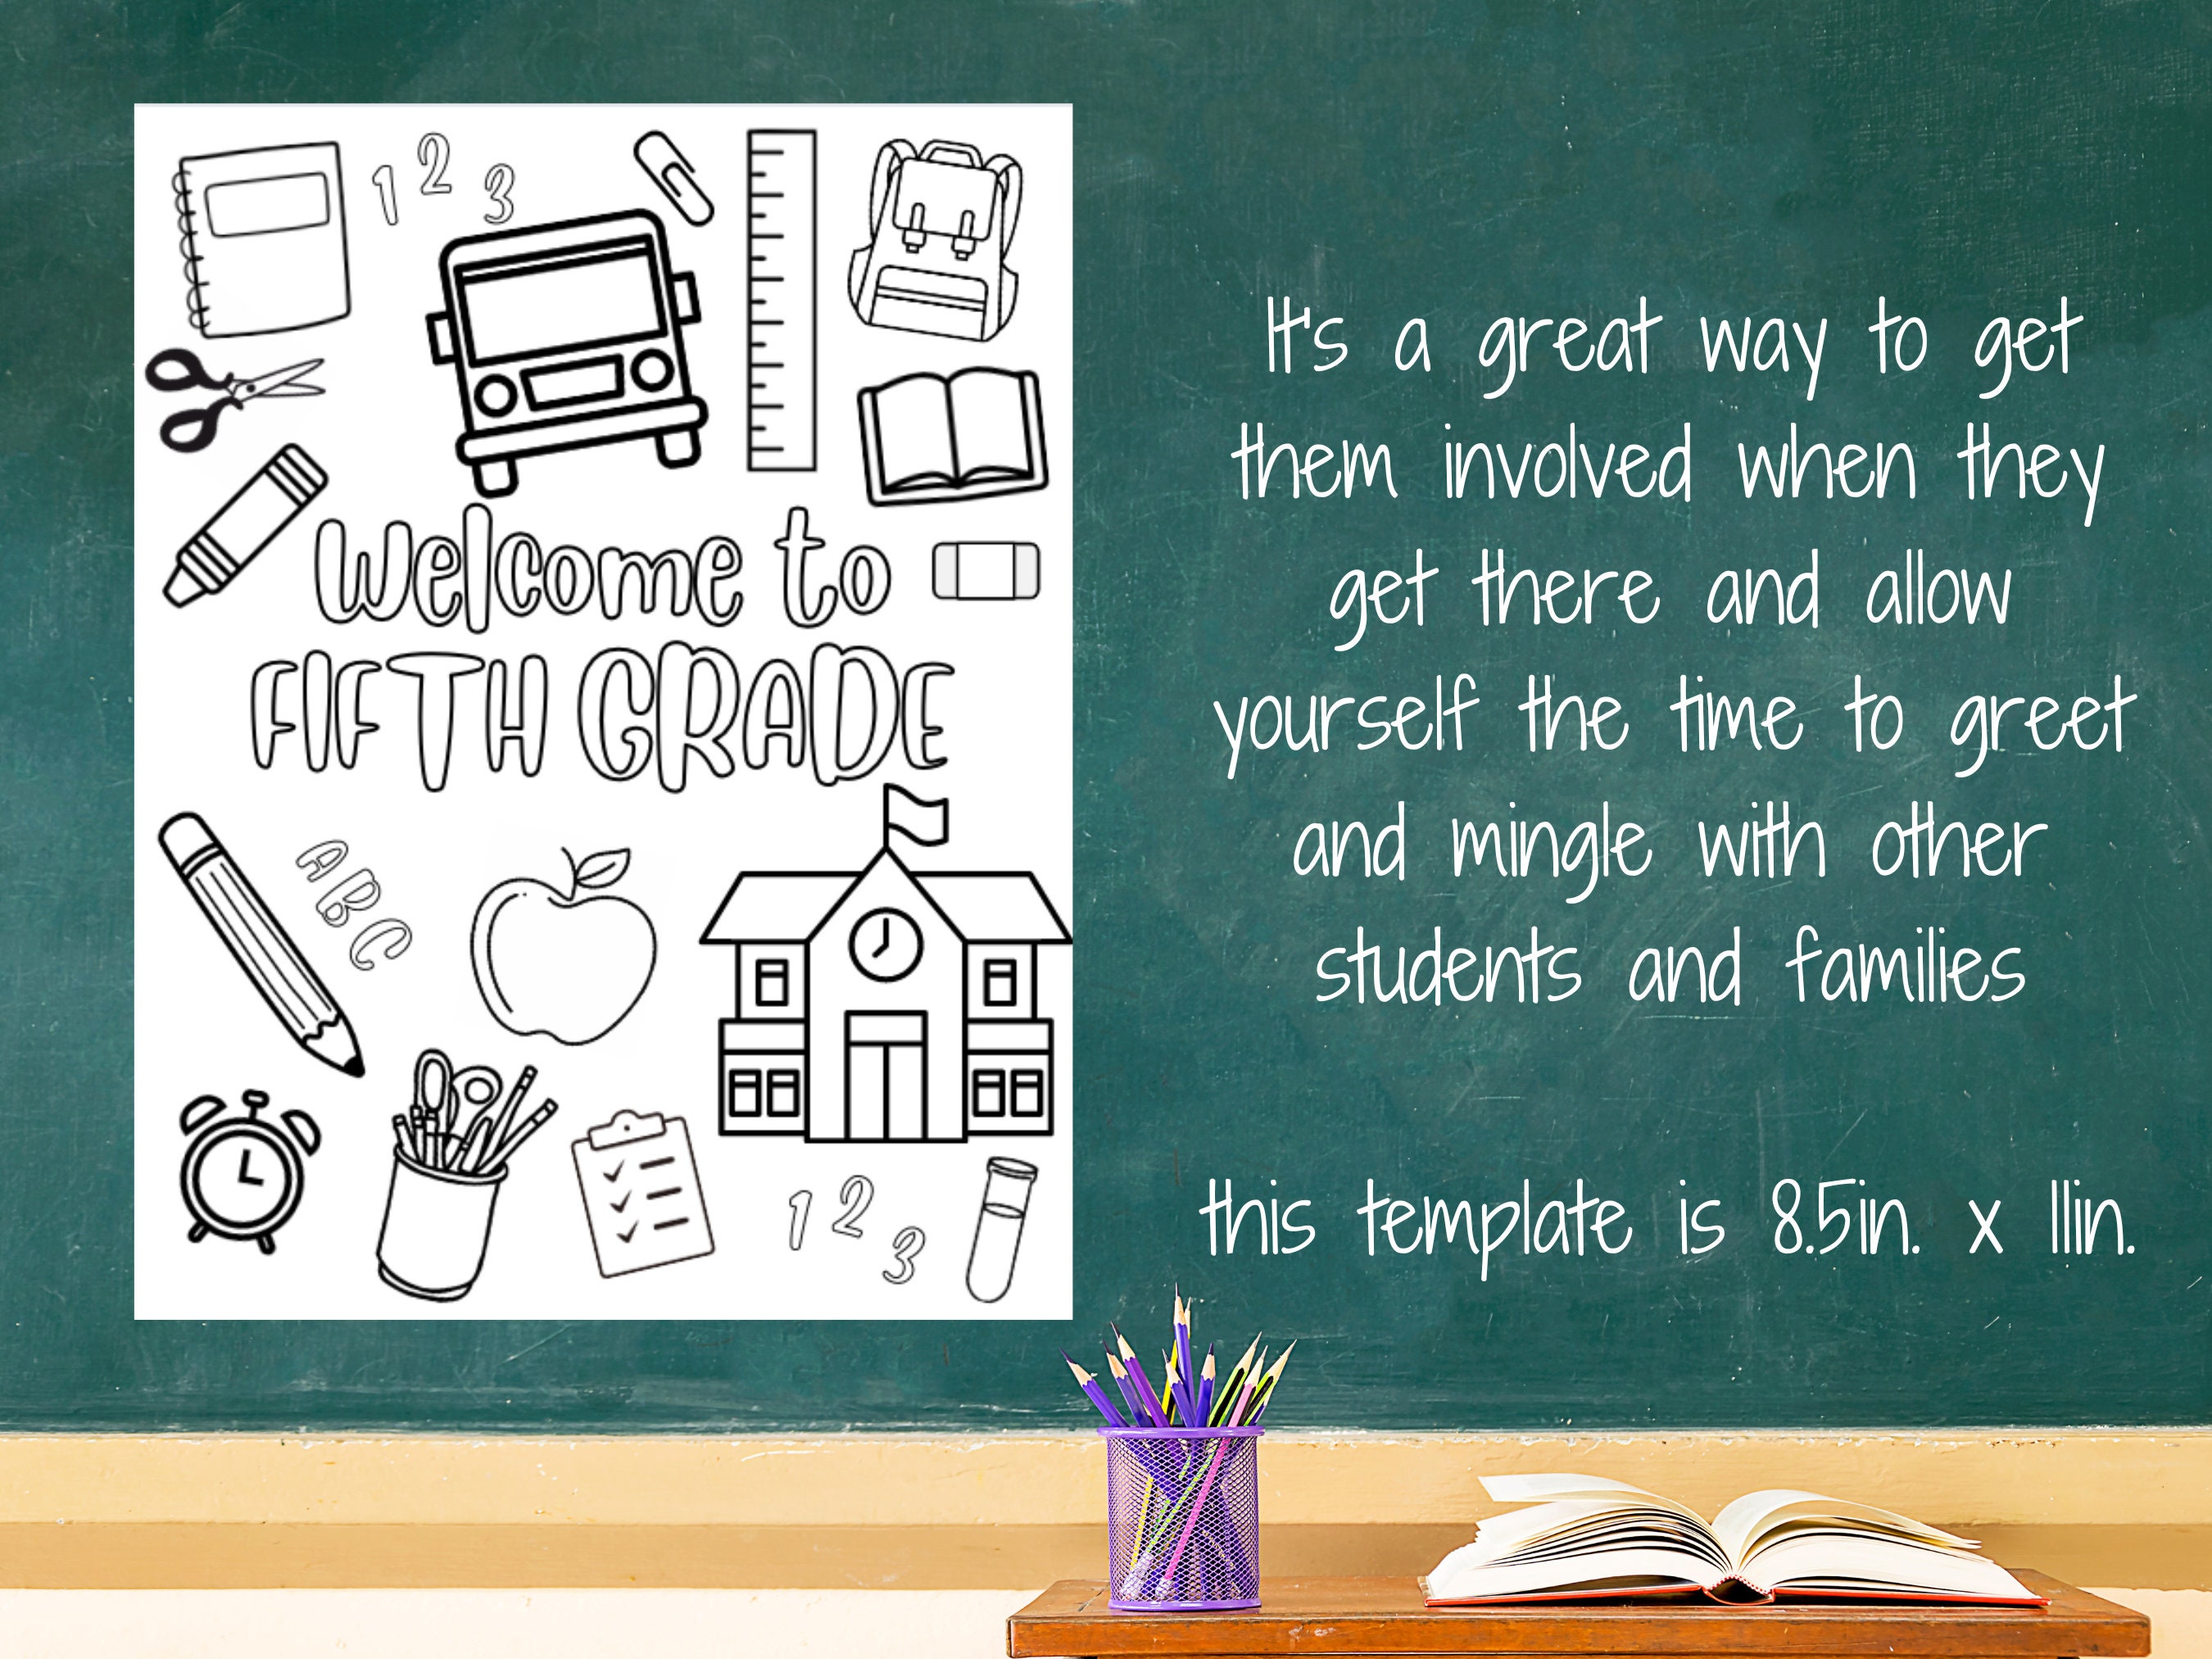 1 2 3
Welcome to
FIFTH GRADE
ABC
1 2 3
It's a great way to get
them involved when they
get there and allow
yourself the time to greet
and mingle with other
students and families
this template is 8.5in. x 11in.